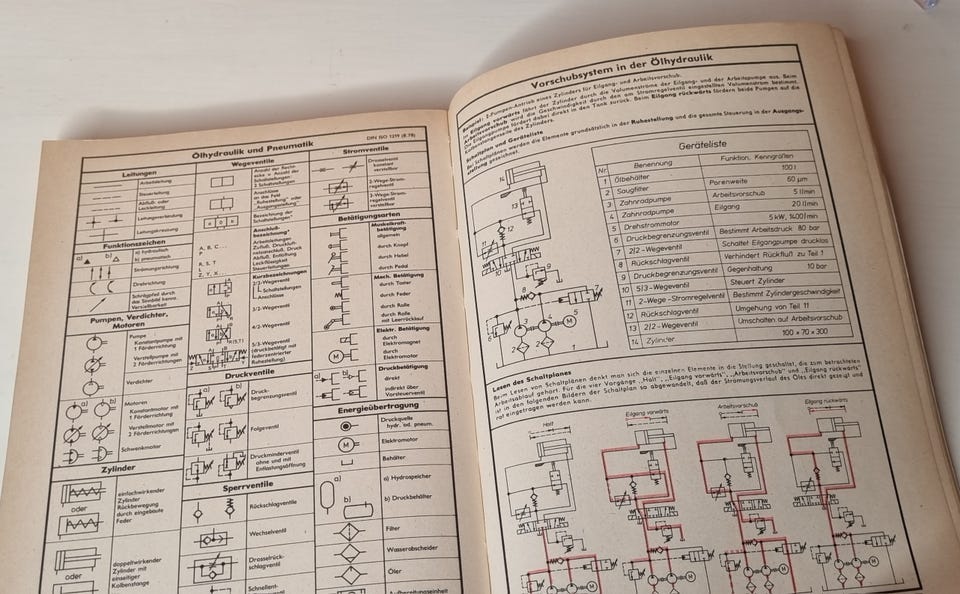 DIN ISO 1219 (8.78)
Ölhydraulik und Pneumatik
Leitungen
Arbeitsleitung
Steuerleitung
Abfluß- oder
Leckleitung
Leitungsverbindung
Leitungskreuzung
Funktionszeichen
a) b) a) hydraulisch
b) pneumatisch
Strömungsrichtung
Drehrichtung
Schrägpfeil durch
das Sinnbild kennz.
Verstellbarkeit
Pumpen, Verdichter,
Motoren
Pumpen
Konstantpumpe mit
1 Förderrichtung
Verstellpumpe mit
2 Förderrichtungen
Verdichter
a) b) Motoren
Konstantmotor mit
1 Förderrichtung
Verstellmotor mit
2 Förderrichtungen
Schwenkmotor
Zylinder
einfachwirkender
Zylinder
Rückbewegung
durch eingebaute
Feder
oder
doppeltwirkender
Zylinder mit
einseitiger
Kolbenstange
oder
Wegeventile
Anzahl der Recht-
ecke = Anzahl der
Schaltstellungen
2 Schaltstellungen
Anschlüsse
an das Feld
"Ruhestellung" oder
"Ausgangsstellung"
a 0 b Bezeichnung der
Schaltstellungen
Anschluß-
bezeichnung
A, B, C... Arbeitsleitungen
P Zufluß, Druckluft-
netzanschluß, Druck
R, S, T Abfluß, Entlüftung
L Leckflüssigkeit
Z, Y, X... Steuerleitungen
Kurzbezeichnungen
2/2-Wegeventil
Schaltstellungen
Anschlüsse
3/2-Wegeventil
4/2-Wegeventil
5/3-Wegeventil
(druckbetätigt mit
federzentrierter
Ruhestellung)
Druckventile
a) b) Druck-
begrenzungsventil
Folgeventil
Druckminderventil
ohne und mit
Entlastungsöffnung
Sperrventile
Rückschlagventile
Wechselventil
Drosselrück-
schlagventil
Schnellent-
Stromventile
Drosselventil
konstant
verstellbar
2-Wege-Strom-
regelventil
3-Wege-Strom-
regelventil
verstellbar
Betätigungsarten
Muskelkraft-
betätigung
allgemein
durch Knopf
durch Hebel
durch Pedal
Mech. Betätigung
durch Taster
durch Feder
durch Rolle
durch Rolle
mit Leerrücklauf
Elektr. Betätigung
durch
Elektromagnet
M durch
Elektromotor
Druckbetätigung
a) b) direkt
indirekt über
Vorsteuerventil
Energieübertragung
Druckquelle
hydr. od. pneum.
M Elektromotor
Behälter
a) b) a) Hydrospeicher
b) Druckbehälter
Filter
Wasserabscheider
Öler
Aufbereitungseinheit
Vorschubsystem in der Ölhydraulik
Beispiel: 2-Pumpen-Antrieb eines Zylinders für Eilgang- und Arbeitsvorschub.
Im Eilgang vorwärts fährt der Zylinder durch die Volumenströme der Eilgang- und der Arbeitspumpe aus. Beim
Arbeitsvorschub wird die Geschwindigkeit durch den am Stromregelventil eingestellten Volumenstrom bestimmt.
Die Eilgangpumpe fördert dabei direkt in den Tank zurück. Beim Eilgang rückwärts fördern beide Pumpen auf die
Kolbenstangenseite des Zylinders.
Schaltplan und Geräteliste
Bei Schaltplänen werden die Elemente grundsätzlich in der Ruhestellung und die gesamte Steuerung in der Ausgangs-
stellung gezeichnet.
Geräteliste
Nr Benennung Funktion, Kenngrößen
1 Ölbehälter 100 l
2 Saugfilter Porenweite 60 µm
3 Zahnradpumpe Arbeitsvorschub 5 l/min
4 Zahnradpumpe Eilgang 20 l/min
5 Drehstrommotor 5 kW, 1400/min
6 Druckbegrenzungsventil Bestimmt Arbeitsdruck 80 bar
7 2/2-Wegeventil Schaltet Eilgangpumpe drucklos
8 Rückschlagventil Verhindert Rückfluß zu Teil 1
9 Druckbegrenzungsventil Gegenhaltung 10 bar
10 5/3-Wegeventil Steuert Zylinder
11 2-Wege-Stromregelventil Bestimmt Zylindergeschwindigkeit
12 Rückschlagventil Umgehung von Teil 11
13 2/2-Wegeventil Umschalten auf Arbeitsvorschub
14 Zylinder 100 × 70 × 300
14
13
12
11
10
9
8
7
6
3 4 M 5
2 2
1
Lesen des Schaltplanes
Beim Lesen von Schaltplänen denkt man sich die einzelnen Elemente in die Stellung geschaltet, die zum betrachteten
Arbeitsablauf gehört. Für die vier Vorgänge „Halt", „Eilgang vorwärts", „Arbeitsvorschub" und „Eilgang rückwärts"
ist in den folgenden Bildern der Schaltplan so abgewandelt, daß der Strömungsverlauf des Öles direkt gezeigt und
rot eingetragen werden kann.
Halt Eilgang vorwärts Arbeitsvorschub Eilgang rückwärts
M M M M